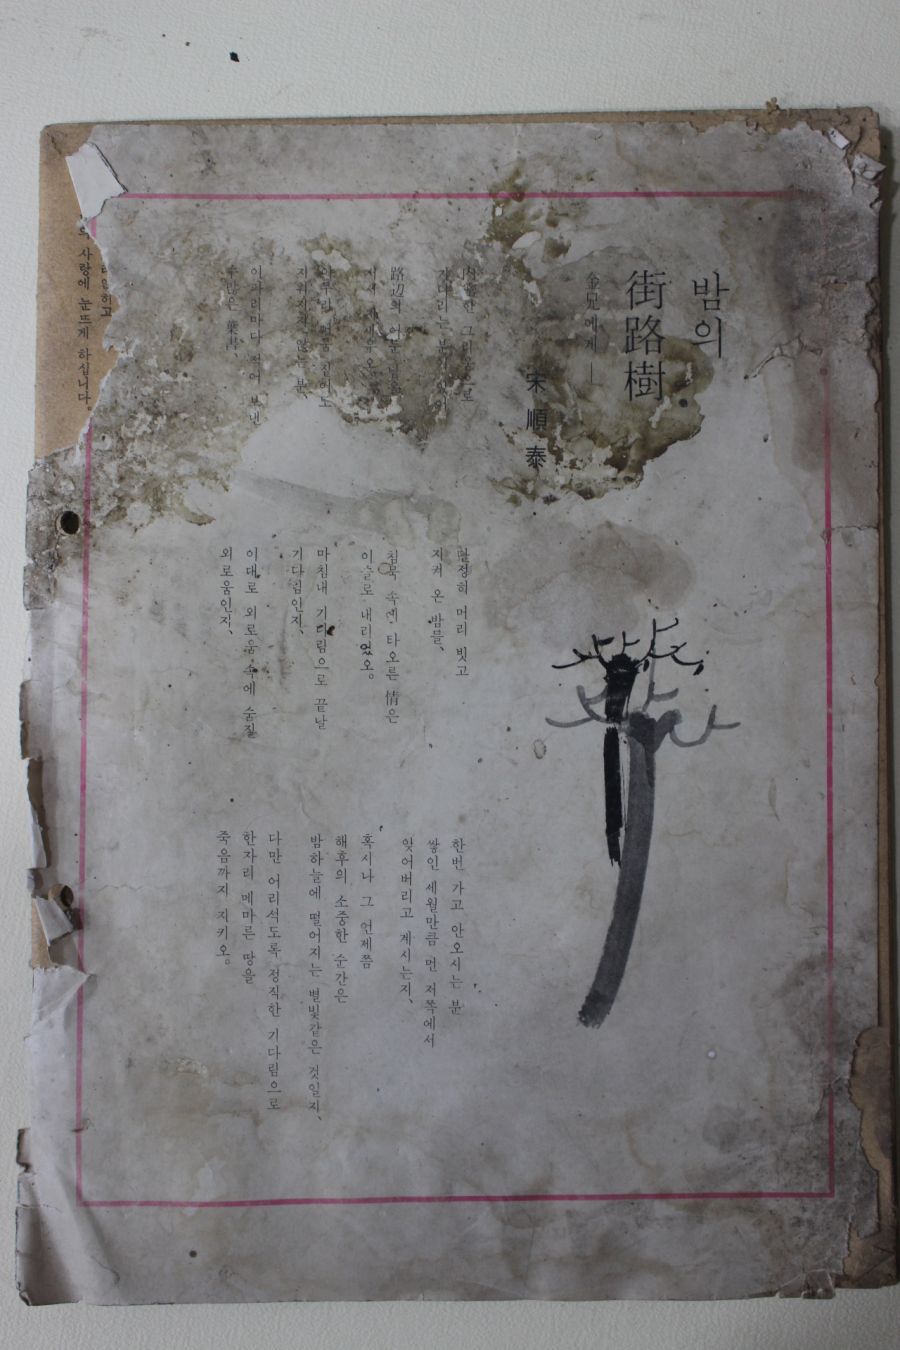 밤의
街路樹
金兄에게 ―
宋順泰
로
자라는
路辺의
지워지지 않는 분、
이파리마다 적어 보낸
수많은 葉書、
단정히 머리 빗고
지켜 온 밤들、
침묵 속에 타오른 情은
이슬로 내리었오。
마침내 기다림으로 끝날
기다림인지、
이대로 외로움 속에 숨질
외로움인지、
한번 가고 안오시는 분
쌓인 세월만큼 먼 저쪽에서
잊어버리고 계시는지、
혹시나 그 언제쯤
해후의 소중한 순간은
밤하늘에 떨어지는 별빛같은 것일지、
다만 어리석도록 정직한 기다림으로
한자리 메마른 땅을
죽음까지 지키오。
하고
사랑에 눈뜨게 하십니다。